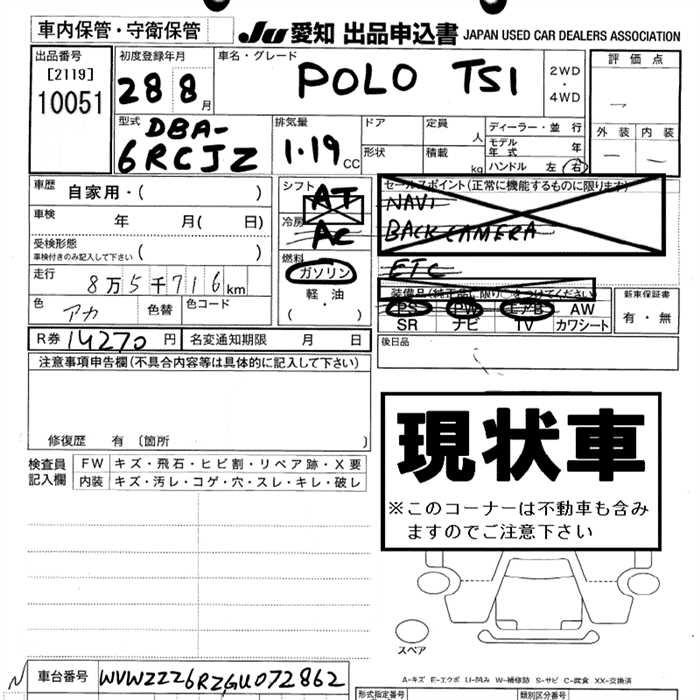 車内保管・守衛保管
JU 愛知 出品申込書 JAPAN USED CAR DEALERS ASSOCIATION
出品番号
[2119]
10051
初度登録年月
28 8 月
車名・グレード
POLO TSI
2WD
・
4WD
評価点
外装 内装
型式
DBA-
6RCJZ
排気量
1.19 CC
ドア
定員 人
形状
積載 kg
ディーラー・並行
モデル年式 年
ハンドル 左 右
車歴 自家用・( )
車検 年 月( 日)
受検形態
車検付きのみ記入して下さい ( )
走行 8万5千716km
色 アカ 色替 色コード
シフト AT
冷房 AC
燃料
ガソリン
軽・油
( ・ )
セールスポイント(正常に機能するものに限ります)
NAVI
BACK CAMERA
ETC
装備品(純正品に限り○をつけてください)
PS PW エアB AW
SR ナビ TV カワシート
新車保証書
有・無
R券 14270 円 名変通知期限 月 日
後日品
注意事項申告欄(不具合内容等は具体的に記入して下さい)
修復歴 有 〔箇所 〕
検査員
記入欄
FW キズ・飛石・ヒビ割・リペア跡・X要
内装 キズ・汚レ・コゲ・穴・スレ・キレ・破レ
現状車
※このコーナーは不動車も含み
ますのでご注意下さい
スペア
A-キズ E-エクボ U-凹み W-補修跡 S-サビ C-腐食 XX-交換済
車台番号 WVWZZZ6RZGU072862
形式指定番号 類別区分番号